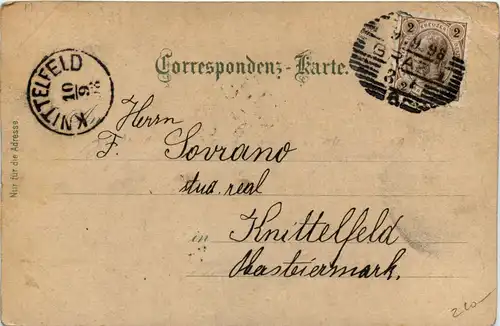 Correspondenz-Karte.
2 KREUZER 2
9.9.98
GRAZ
KNITTELFELD
10
9
Nur für die Adresse.
Herrn
F. Sovrano
stud. real
in Knittelfeld
Obersteiermark.